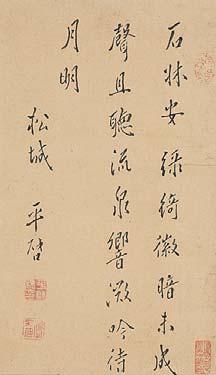 石牀安綠綺徽暗未成
聲且聽流泉響澂吟待
月明
松城 平啓